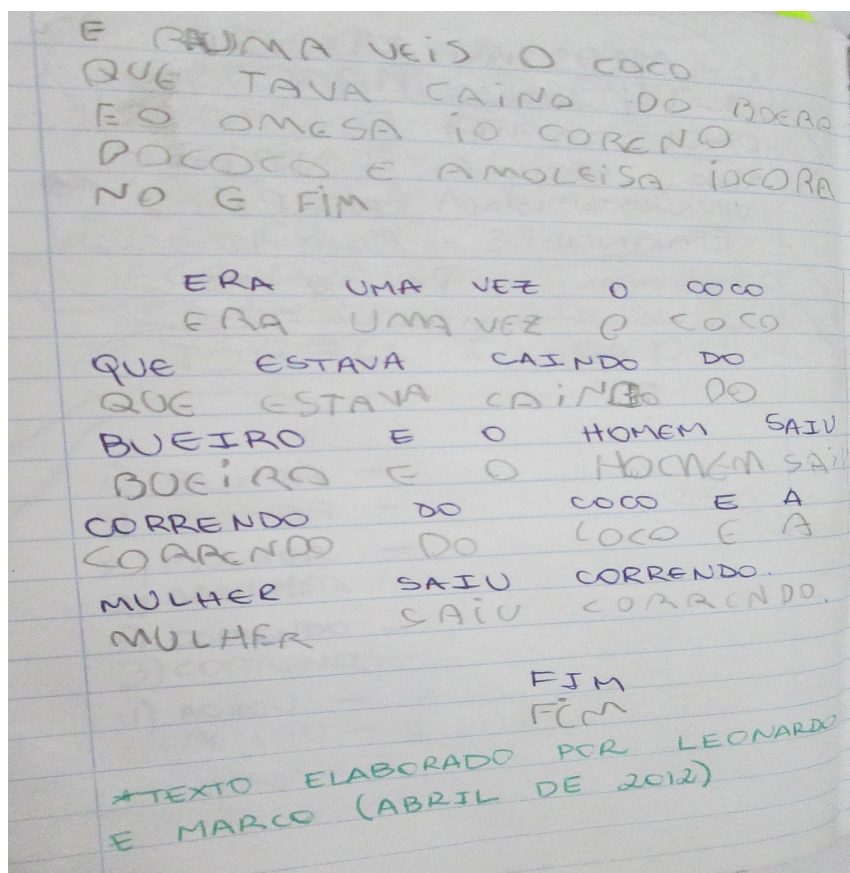 E RAUMA VEIS O COCO
QUE TAVA CAINO DO BOERO
E O OMESA IO CORENO
DOCOCO E AMOLEISA IOCORA
NO E FIM
ERA UMA VEZ O COCO
ERA UMA VEZ O COCO
QUE ESTAVA CAINDO DO
QUE ESTAVA CAINDO DO
BUEIRO E O HOMEM SAIU
BOEIRO E O HOMEM SAI
CORRENDO DO COCO E A
CORRENDO DO COCO E A
MULHER SAIU CORRENDO.
MULHER SAIU CORRENDO.
FIM
FIM
*TEXTO ELABORADO POR LEONARDO
E MARCO (ABRIL DE 2012)